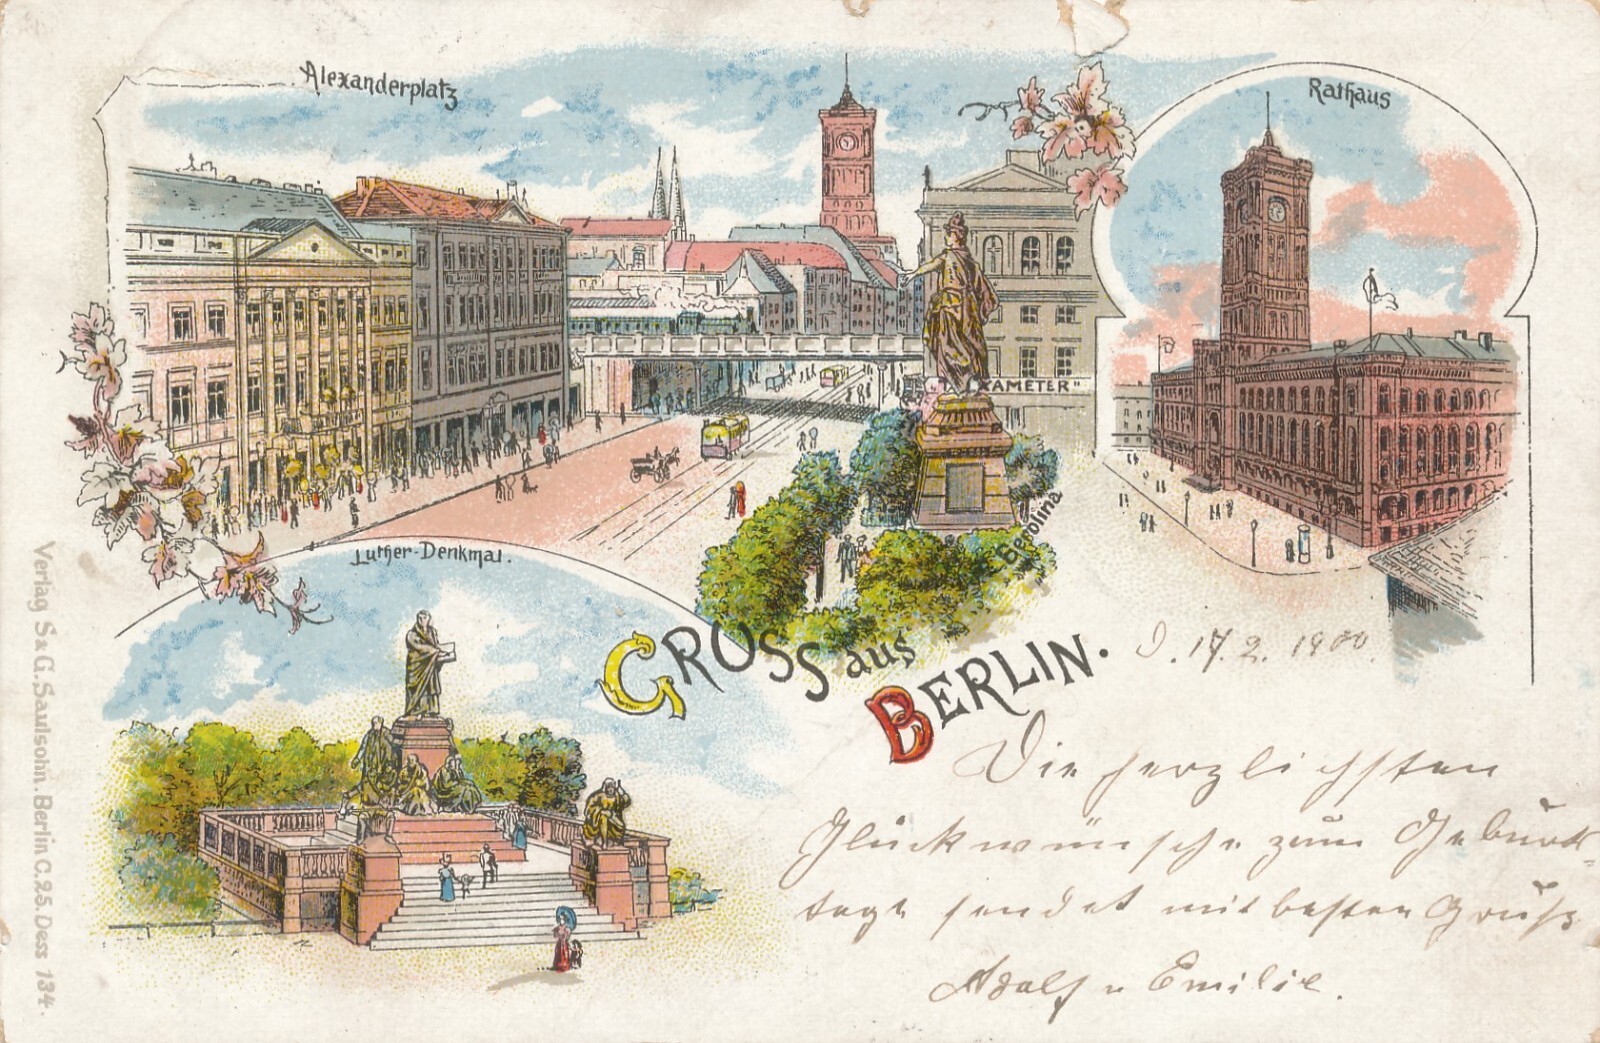 Alexanderplatz
Rathaus
XAMETER"
Berolina
Luther-Denkmal.
GROSS aus
BERLIN.
D. 17.2. 1900.
Die herzlichsten
Glückwünsche zum Geburts-
tage sendet mit besten Gruß
Adolf u Emilie.
Verlag S & G. Saulsohn. Berlin C. 25. Dess 134.